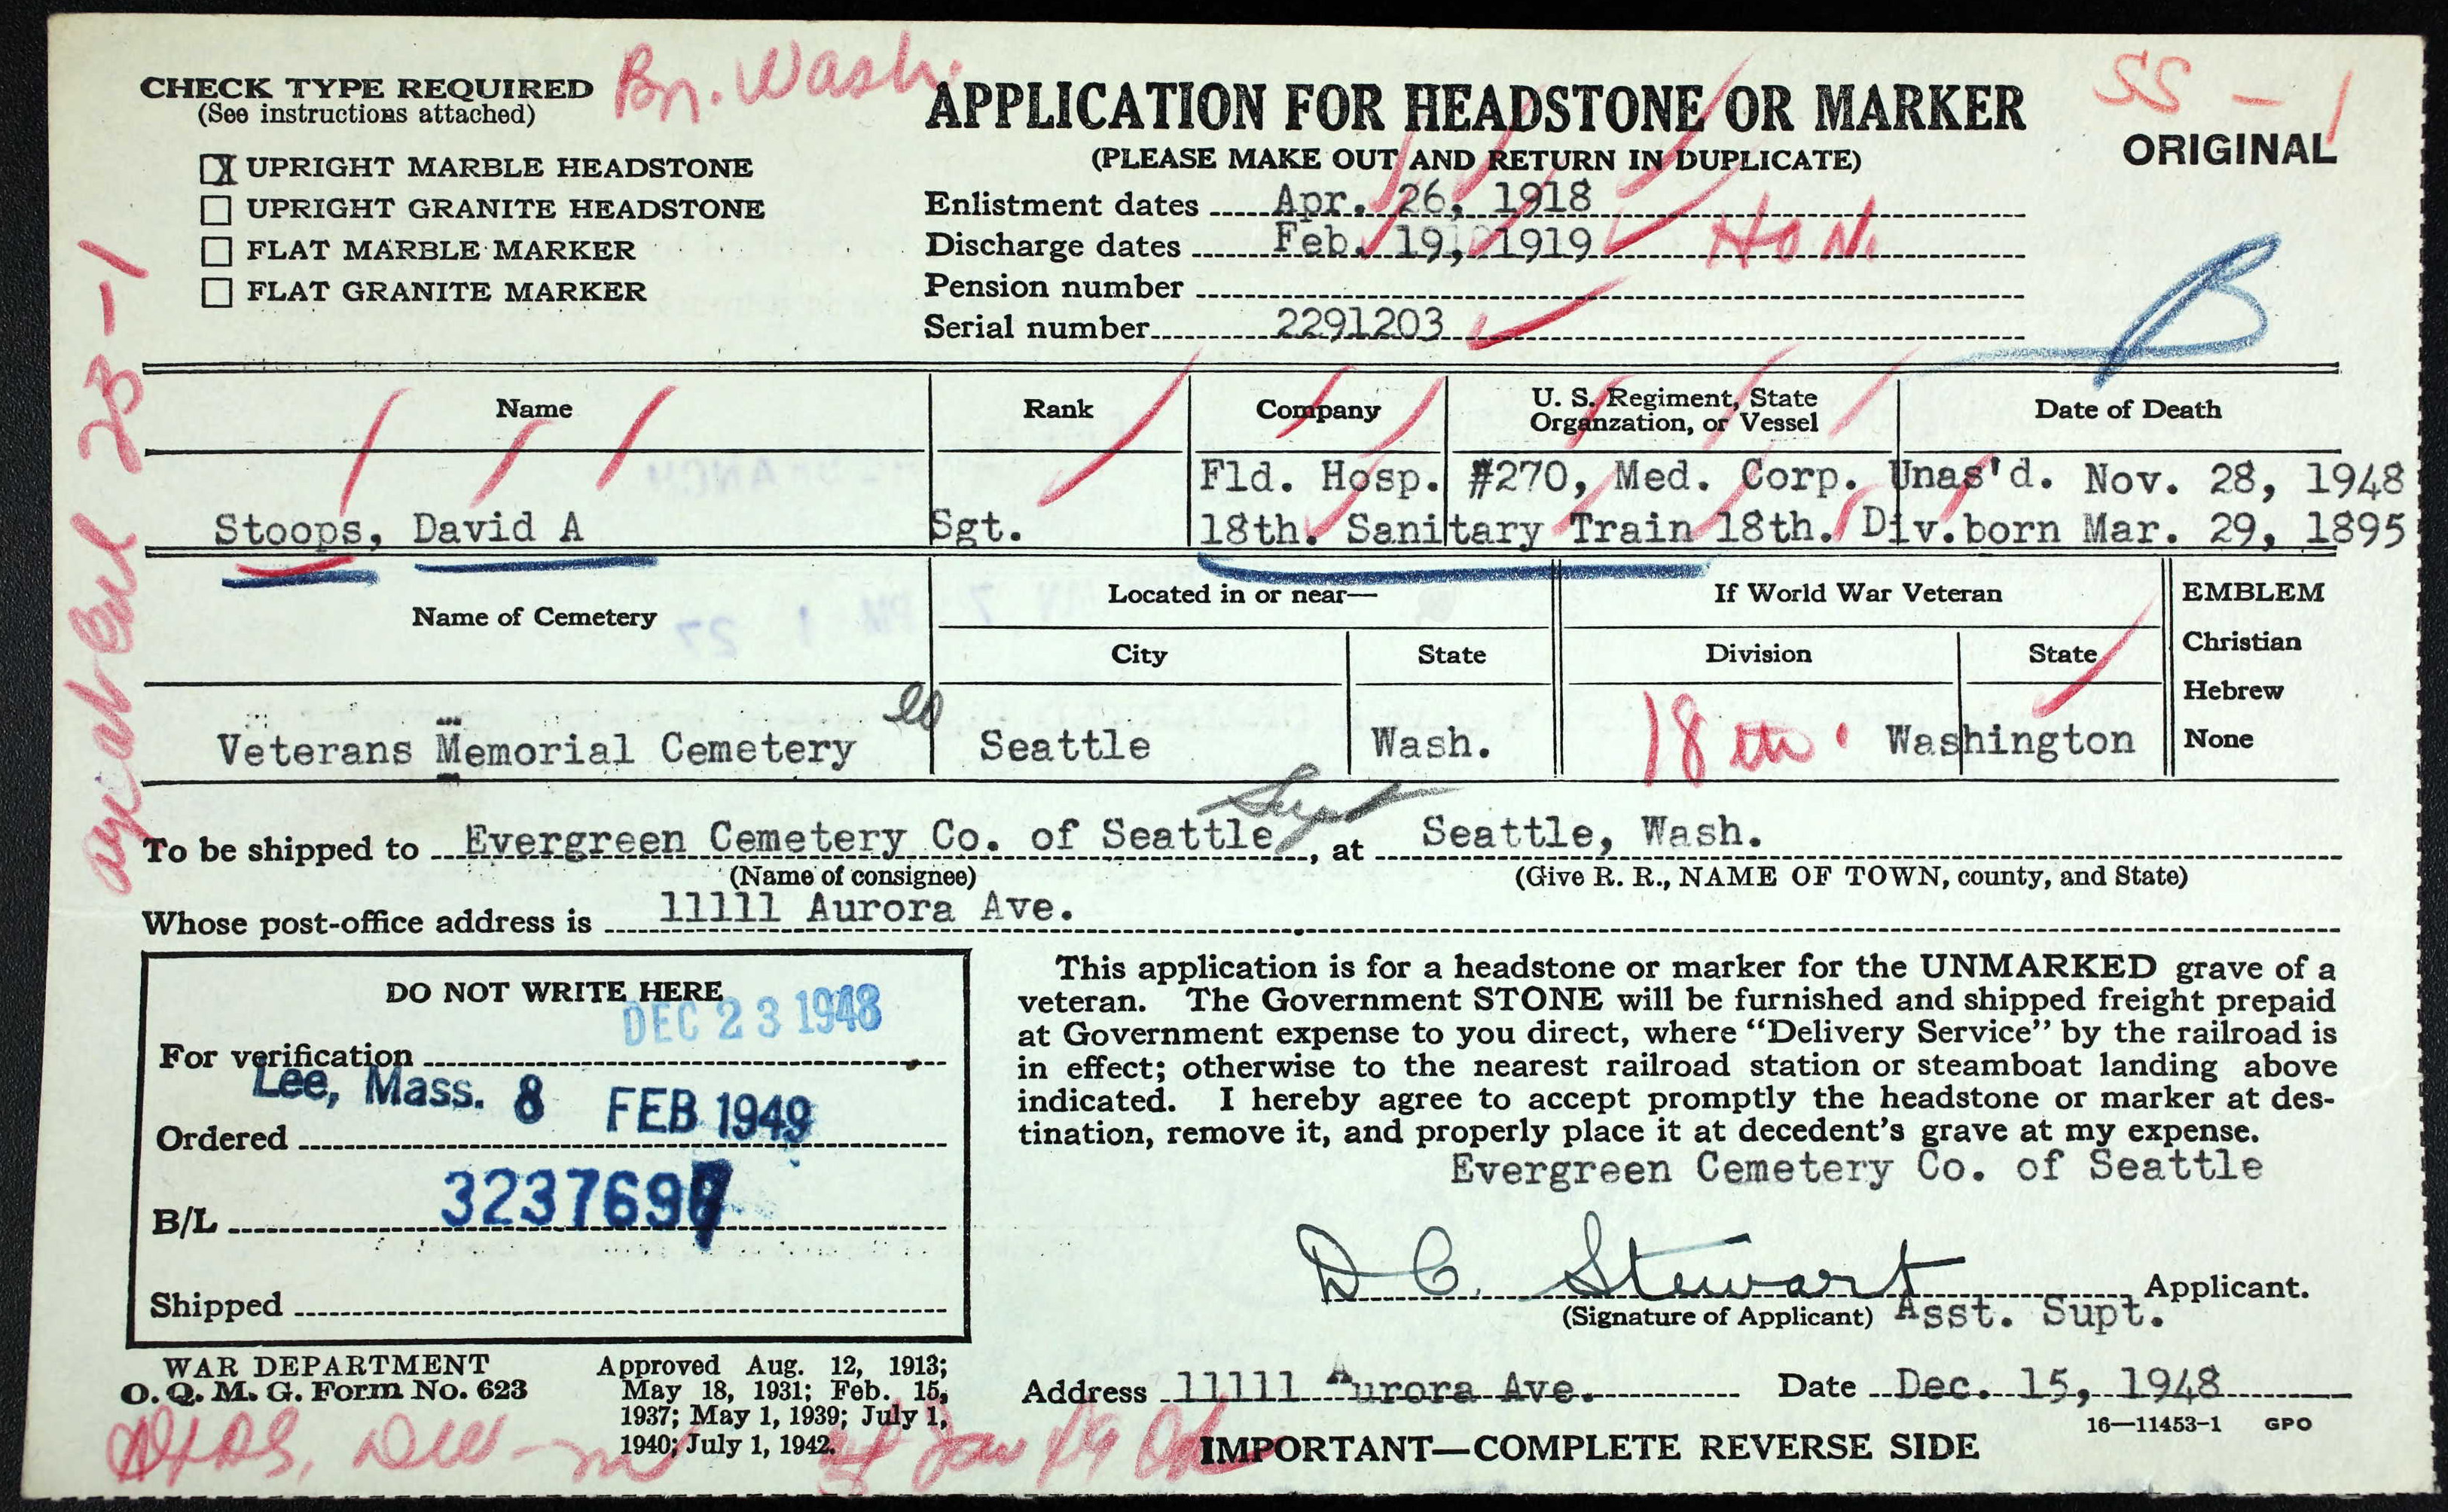 CHECK TYPE REQUIRED
(See instructions attached)
Bn. Wash.
X UPRIGHT MARBLE HEADSTONE
UPRIGHT GRANITE HEADSTONE
FLAT MARBLE MARKER
FLAT GRANITE MARKER
APPLICATION FOR HEADSTONE OR MARKER
(PLEASE MAKE OUT AND RETURN IN DUPLICATE)
SS - 1
ORIGINAL
Enlistment dates Apr. 26, 1918
Discharge dates Feb. 19, 1919 HON.
Pension number
Serial number 2291203
B
23-1
Name Rank Company U. S. Regiment, State Organzation, or Vessel Date of Death
Fld. Hosp. #270, Med. Corp. Unas'd. Nov. 28, 1948
Stoops, David A Sgt. 18th. Sanitary Train 18th. Div. born Mar. 29, 1895
Name of Cemetery Located in or near— If World War Veteran EMBLEM
City State Division State Christian
Hebrew
None
Veterans Memorial Cemetery Seattle Wash. 18th Washington
Supt
To be shipped to Evergreen Cemetery Co. of Seattle, at Seattle, Wash.
(Name of consignee) (Give R. R., NAME OF TOWN, county, and State)
Whose post-office address is 11111 Aurora Ave.
DO NOT WRITE HERE
DEC 23 1948
For verification
Lee, Mass. 8 FEB 1949
Ordered
B/L 3237697
Shipped
This application is for a headstone or marker for the UNMARKED grave of a
veteran. The Government STONE will be furnished and shipped freight prepaid
at Government expense to you direct, where "Delivery Service" by the railroad is
in effect; otherwise to the nearest railroad station or steamboat landing above
indicated. I hereby agree to accept promptly the headstone or marker at des-
tination, remove it, and properly place it at decedent's grave at my expense.
Evergreen Cemetery Co. of Seattle
D C. Stewart Applicant.
(Signature of Applicant) Asst. Supt.
Address 11111 Aurora Ave. Date Dec. 15, 1948
16—11453-1 GPO
IMPORTANT—COMPLETE REVERSE SIDE
WAR DEPARTMENT
O. Q. M. G. Form No. 623
Approved Aug. 12, 1913;
May 18, 1931; Feb. 15,
1937; May 1, 1939; July 1,
1940; July 1, 1942.